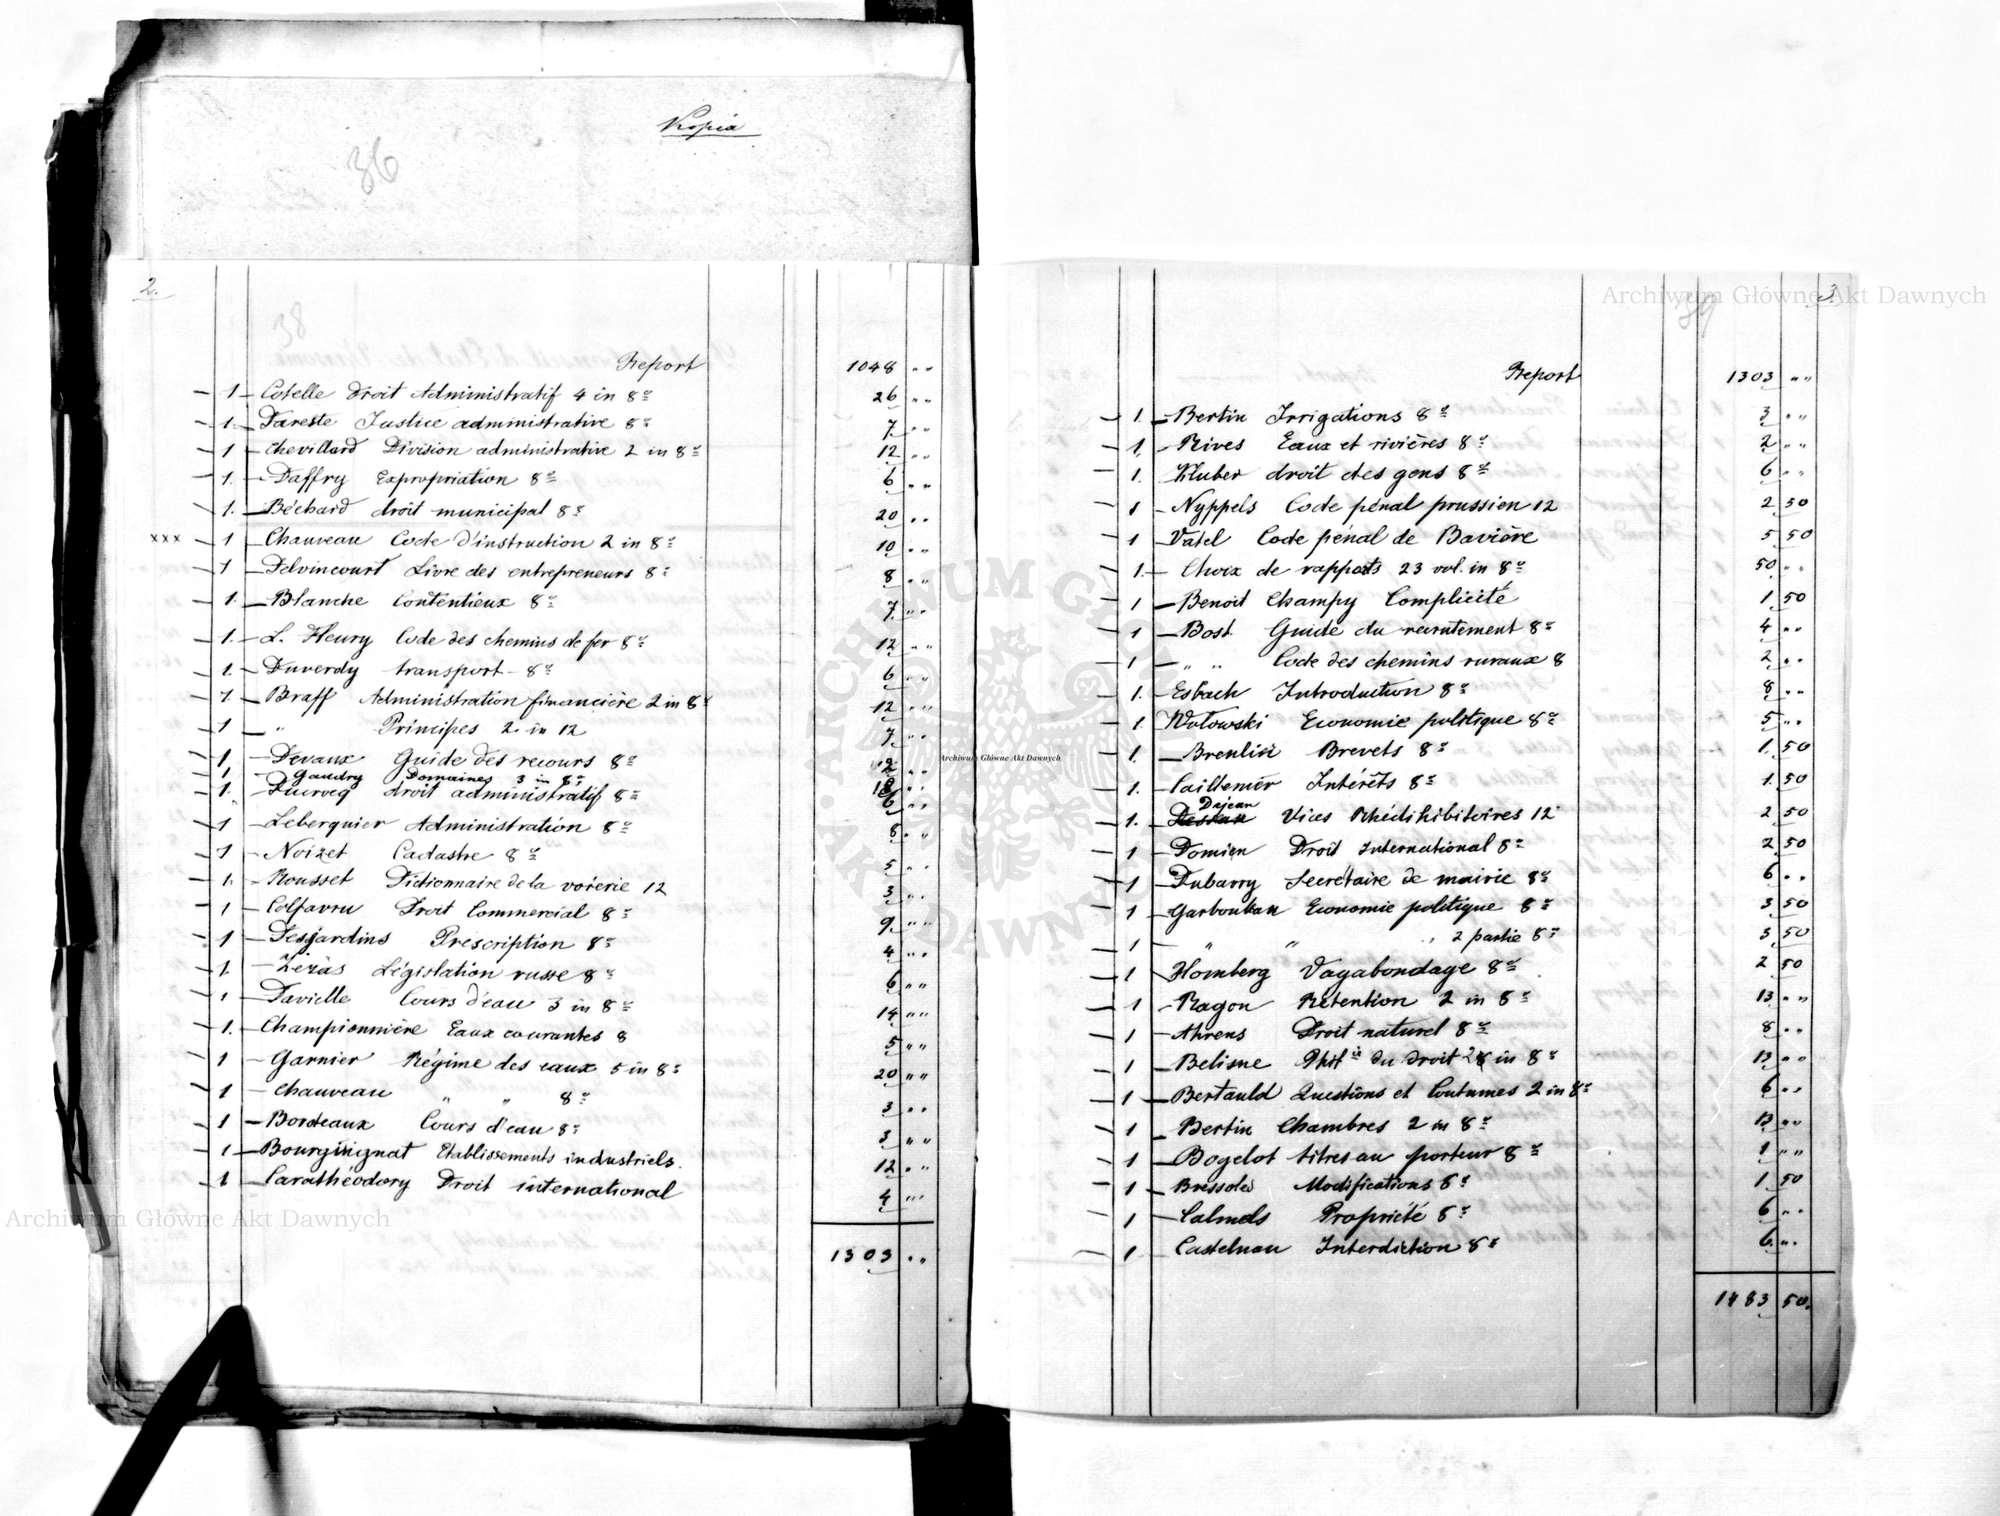 Kopia
36
2.
38
Report 1048 " "
1 Cotelle Droit Administratif 4 in 8º 26 " "
1. Dareste Justice administrative 8º 7 " "
1 Chevillard Division administrative 2 in 8º 12 " "
1. Daffry Expropriation 8º 6 " "
1. Béchard droit municipal 8º 20 " "
xxx 1 Chauveau Code d'instruction 2 in 8º 10 " "
1 Delvincourt Livre des entrepreneurs 8º 8 " "
1. Blanche Contentieux 8º 7 " "
1. L. Fleury Code des chemins de fer 8º 12 " "
1. Duverdy transport 8º 6 " "
1. Braff Administration financière 2 in 8º 12 " "
1 " Principes 2 in 12 7 " "
1. Devaux Guide des recours 8º 12 " "
1 Gaudry Domaines 3 in 8º 18 " "
1. Ducrocq droit administratif 8º 6 " "
1 Leberquier Administration 8º 8 " "
1 Noizet Cadastre 8º 5 " "
1. Rousset Dictionnaire de la voierie 12 3 " "
1 Colfavru Droit Commercial 8º 9 " "
1 Desjardins Prescription 8º 4 " "
1. Zézas Législation russe 8º 6 " "
1 Davielle Cours d'eau 3 in 8º 14 " "
1. Championnière Eaux courantes 8 5 " "
1 Garnier Régime des eaux 5 in 8º 20 " "
1 Chauveau " " 8º 3 " "
1 Bordeaux Cours d'eau 8º 3 " "
1 Bourguignat Etablissements industriels. 12 " "
1 Caratheodory Droit international 4 " "
1303 " "
3.
39
Report 1303 " "
1. Bertin Irrigations 8º 3 " "
1. Rives Eaux et rivières 8º 2 " "
1. Kluber droit des gens 8º 6 " "
1 Nyppels Code pénal prussien 12 2 50
1 Vatel Code pénal de Bavière 5 50
1. Choix de rapports 23 vol. in 8º 50 " "
1 Benoit Champy Complicité 1 50
1 Bost Guide du recrutement 8º 4 " "
1 " " Code des chemins ruraux 8 2 " "
1. Esbach Introduction 8º 8 " "
1. Wołowski Economie politique 8º 5 " "
1. Breulier Brevets 8º 1. 50
1. Caillemer Intérêts 8º 1. 50
1. Dejean Vices Rhédihibitoires 12 2 50
1 Domien Droit International 8º 2 50
1 Dubarry Secretaire de mairie 8º 6 " "
1 Garboukan Economie politique 8º 3 50
1 " " " 2 partie 8º 3 50
1 Homberg Vagabondage 8º 2 50
1 Ragon Rétention 2 in 8º 13 " "
1 Ahrens Droit naturel 8º 8 " "
1 Belisme Phil ie du Droit 2 in 8º 13 " "
1 Bertauld Questions et Coutumes 2 in 8º 6 " "
1 Bertin Chambres 2 in 8º 13 " "
1 Bogelot titres au porteur 8º 1 " "
1 Bressoles Modifications 8º 1 50
1 Calmels Propriété 8º 6 " "
1 Castelnau Interdiction 8º 6 " "
1483 50.
Archiwum Główne Akt Dawnych
Archiwum Główne Akt Dawnych
Archiwum Główne Akt Dawnych